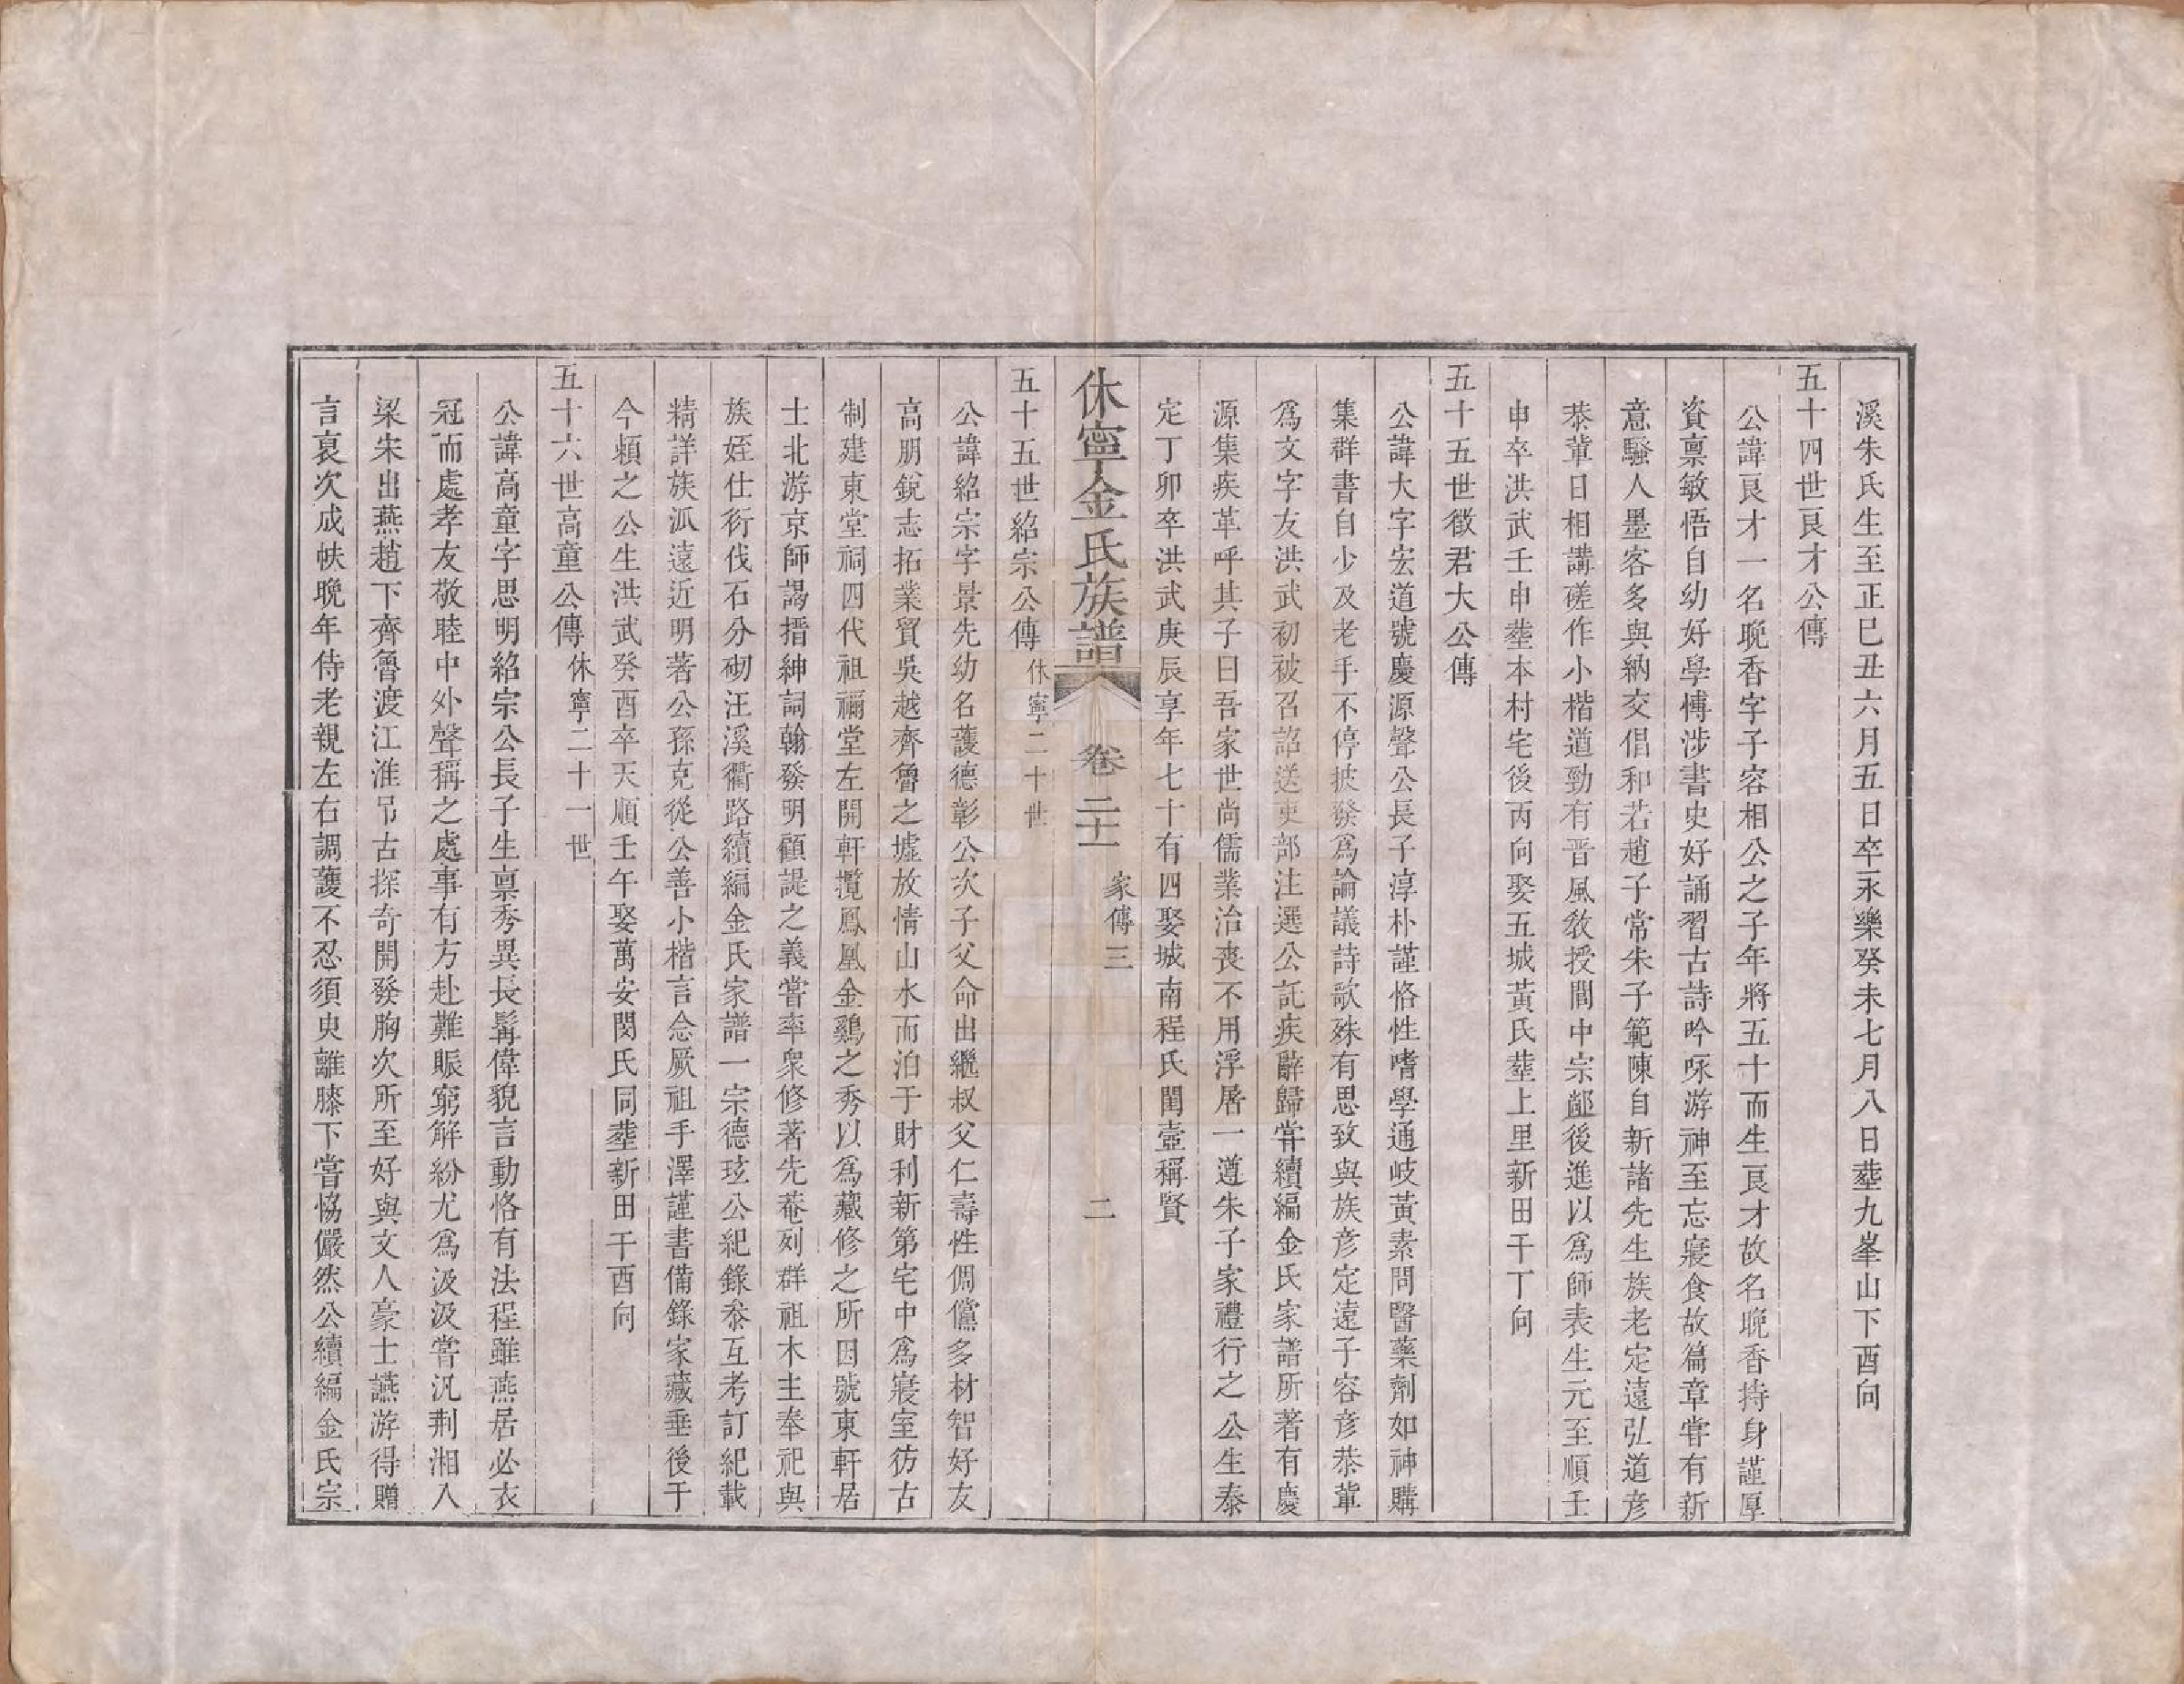 溪朱氏生至正己丑六月五日卒永樂癸未七月八日塟九峯山下酉向
五十四世艮才公傳
公諱艮才一名晚香字子容相公之子年將五十而生艮才故名晚香持身謹厚
資稟敏悟自幼好學博涉書史好誦習古詩吟咏游神至忘寢食故篇章甞有新
意騷人墨客多與納交倡和若趙子常朱子範陳自新諸先生族老定遠弘道彦
恭軰日相講磋作小楷遒勁有晋風敎授閭中宗鄙後進以爲師表生元至順壬
申卒洪武壬申塟本村宅後丙向娶五城黃氏塟上里新田干丁向
五十五世徵君大公傳
公諱大字宏道號慶源聲公長子淳朴謹恪性嗜學通岐黃素問醫藥劑如神購
集群書自少及老手不停披發爲論議詩歌殊有思致與族彦定遠子容彦恭軰
爲文字友洪武初被召詔送吏部注選公託疾辭歸甞續編金氏家譜所著有慶
源集疾革呼其子曰吾家世尚儒業治喪不用浮屠一遵朱子家禮行之公生泰
定丁卯卒洪武庚辰享年七十有四娶城南程氏閨壼稱賢
休寧金氏族譜 卷二十一 家傳三 二
五十五世紹宗公傳 休寧二十世
公諱紹宗字景先幼名護德彰公次子父命出繼叔父仁壽性倜儻多材智好友
高朋銳志拓業賀吳越齊魯之墟放情山水而泊于財利新第宅中爲寢室彷古
制建東堂祠四代祖禰堂左開軒攬鳳凰金鷄之秀以爲藏修之所因號東軒居
士北游京師謁搢紳詞翰發明顧諟之義嘗率衆修著先菴刻群祖木主奉祀與
族姪仕衍伐石分砌汪溪衢路續編金氏家譜一宗德玹公紀錄叅互考訂紀載
精詳族派遠近明著公孫克從公善小楷言念厥祖手澤謹書備錄家藏垂後于
今頼之公生洪武癸酉卒天順壬午娶萬安閔氏同塟新田干酉向
五十六世高童公傳 休寧二十一世
公諱高童字思明紹宗公長子生稟秀異長髯偉貌言動恪有法程雖燕居必衣
冠而處孝友敬睦中外聲稱之處事有方赴難賑窮解紛尤爲汲汲甞汎荆湘入
梁朱出燕趙下齊魯渡江淮吊古探奇開發胸次所至好與文人豪士讌游得贈
言裒次成帙晩年侍老親左右調護不忍須臾離膝下嘗恊儼然公續編金氏宗